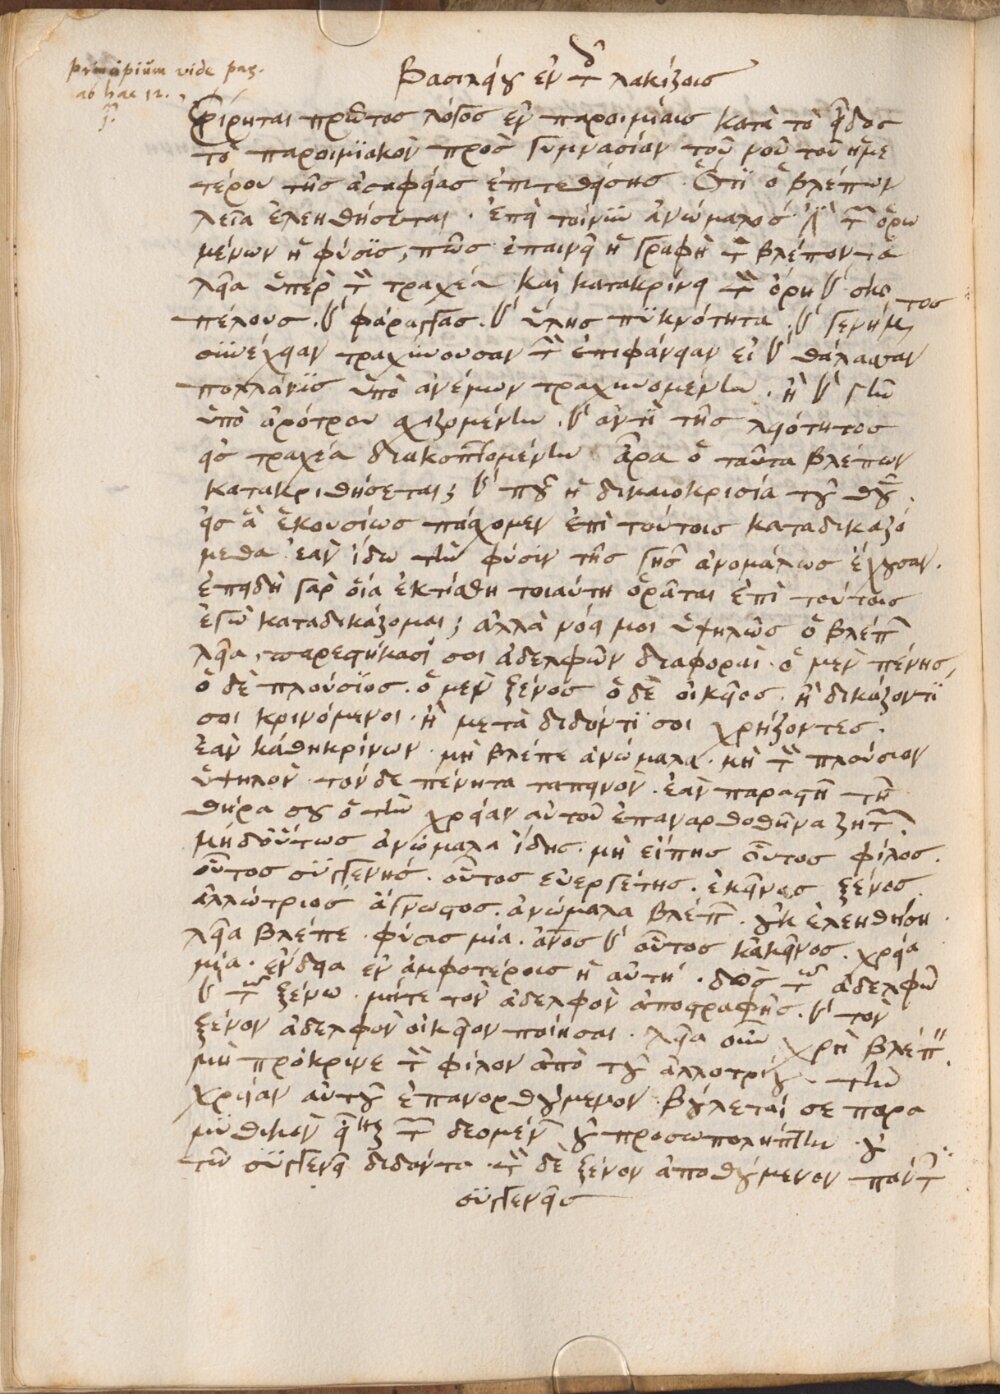 principium vide pag.
ab hac 12.
Βασιλείου ἐν τῷ λακίζοις
Εἴρηται πρῶτος λόγος ἐν παροιμίαις κατὰ τὸ εἶδος
τὸ παροιμϊακὸν πρὸς γυμνασίαν τοῦ νοῦ τοῦ ἡμε
τέρου τῆς ἀσαφείας ἐπιτεθείσης. Ὅτι ὁ βλέπων
λεῖα ἐλεηθήσεται. ἐπεὶ τοίνυν ἀνώμαλος τῶν ὁρω
μένων ἡ φύσϊς, πῶς ἐπαινεῖ ἡ γραφὴ τὸν βλέποντα
λεῖα ὑπὲρ τὸν τραχέα καὶ κατακρίνει τὸν ὄρη καὶ σκο
πέλους. καὶ φάραγγας. καὶ ὕλης πϋκνότητα. καὶ γενήματος
συνέχειαν τραχύνουσαν τὴν ἐπιφάνειαν εἰ καὶ θάλατταν
πολλάκϊς ὑπὸ ἀνέμων τραχυνομένην. ἢ καὶ γῆν
ὑπὸ ἀρότρου σχιζομένην. καὶ ἀντὶ τῆς λειότητος
εἰς τραχέα διακοπτομένην ἆρα ὁ ταῦτα βλέπων
κατακριθήσεται; καὶ ποῦ ἡ δικαιοκρισία τοῦ θεοῦ.
εἰς ἃ ἑκουσίως πάσχομεν ἐπὶ τούτοις καταδικαζό
μεθα ἐὰν ἴδω τὴν φύσιν τῆς γῆς ἀνομάλως ἔχουσαν.
ἐπειδὴ γὰρ οἵα ἐκτίσθη τοιαύτη ὁρᾶται ἐπὶ τούτοις
ἐγὼ καταδικάζομαι; ἀλλὰ νόει μοι ὑψηλῶς ὁ βλέπων
λεῖα, παρεστήκασί σοι ἀδελφῶν διαφοραί. ὁ μὲν πένης,
ὁ δὲ πλούσϊος. ὁ μὲν ξένος ὁ δὲ οἰκεῖος. ἢ δικάζοντί
σοι κρινόμενοι. ἢ μεταδιδόντι σοι χρῄζοντες.
ἐὰν κάθῃ κρίνων. μὴ βλέπε ἀνώμαλα. μὴ τὸν πλούσιον
ὑψηλὸν. τὸν δὲ πένητα ταπεινόν. ἐὰν παραστῇ τῇ
θύρᾳ σου ὁ τὴν χρείαν αὐτοῦ ἐπαναρθοθῆναι ζητῶν.
μηδ' οὕτως ἀνώμαλα ἴδῃς. μὴ εἴπῃς οὗτος φίλος.
οὗτος συγγενής. οὗτος εὐεργέτης. ἐκεῖνος ξένος
ἀλλώτριος ἄγνωστος. ἀνώμαλα βλέπων. οὐκ ἐλεηθήσῃ.
λεῖα βλέπε. φύσις μία. ἄνθρωπος καὶ οὗτος κἀκεῖνος. χρεία
μία. ἔνδεια ἐν ἀμφοτέροις ἡ αὐτή. δὸς τῷ ἀδελφῷ
καὶ τῷ ξένῳ. μήτε τὸν ἀδελφὸν ἀποστραφῇς. καὶ τὸν
ξένον ἀδελφὸν οἰκεῖον ποίησαι. λεῖα οὖν χρὴ βλέπειν.
μὴ πρόκρινε τὸν φίλον ἀπὸ τοῦ ἀλλοτρίου. τὴν
χρείαν αὐτοῦ ἐπανορθούμενον βούλεταί σε παρα
μυθικὸν εἶναι τῶν δεομένων οὐ προσωπολήπτην. οὐ
τῷ συγγενεῖ διδόντα. τὸν δὲ ξένον ἀποθούμενον πάντων
συγγενεῖς